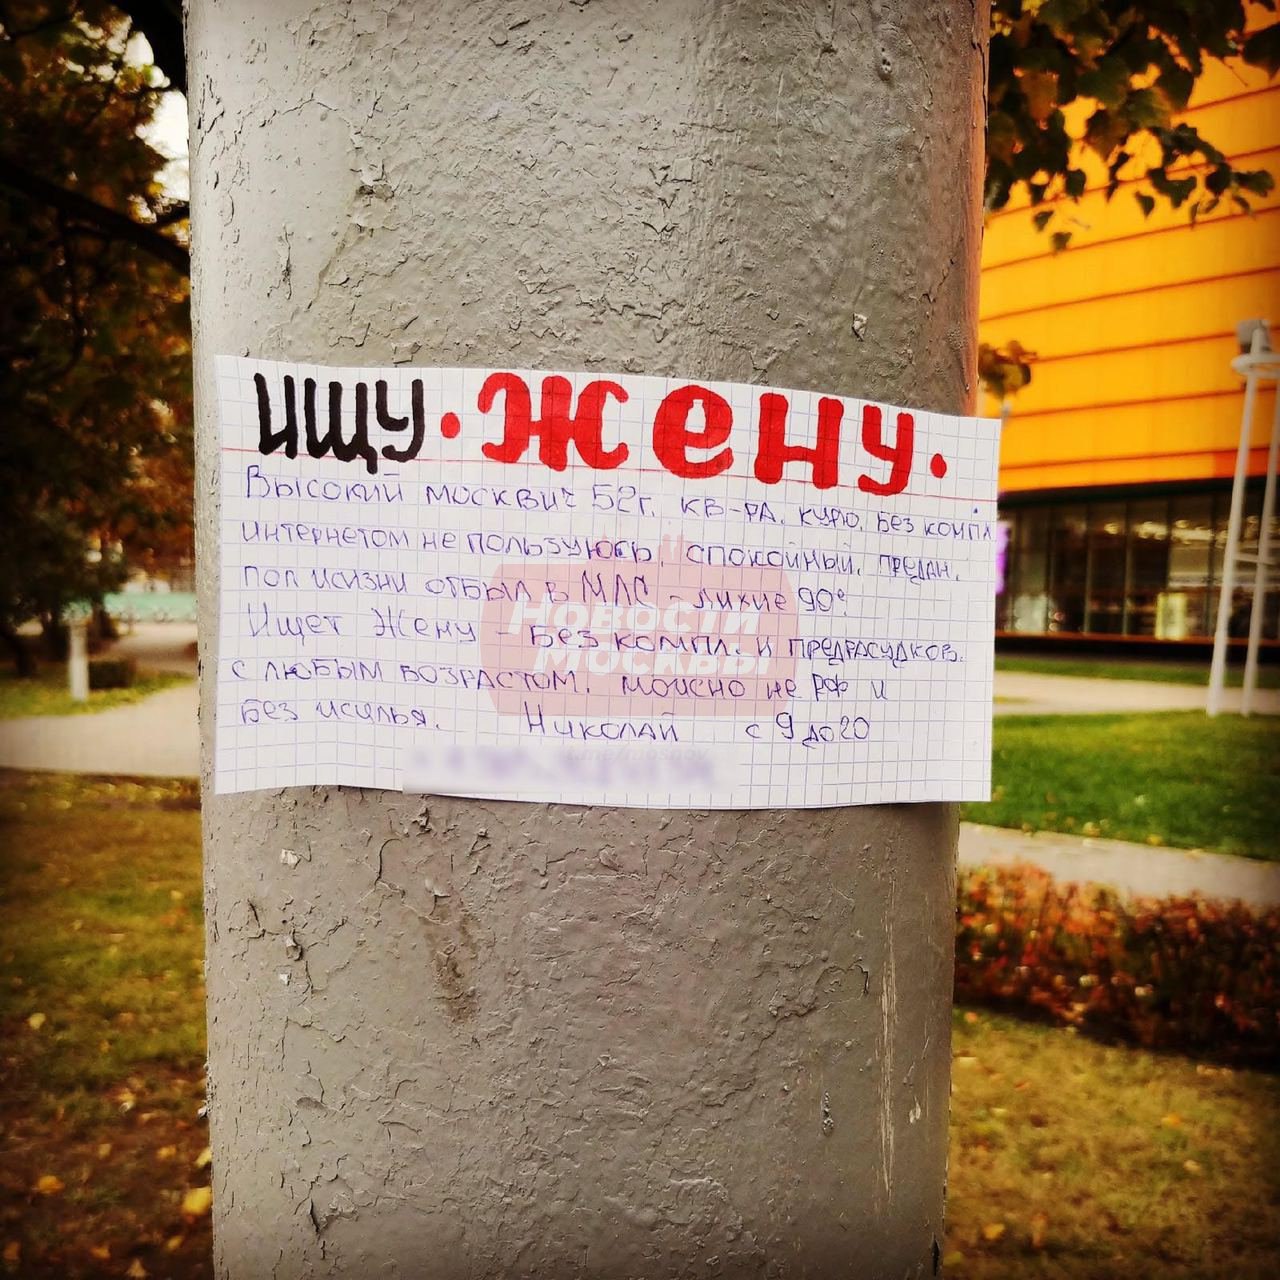 ищу • Жену •
Высокий москвич 52г. кв-ра. курю. Без компл
интернетом не пользуюсь. спокойный. предан.
пол жизни отбыл в МЛС - лихие 90е
Ищет Жену - Без компл. и предрасудков.
с любым возрастом. можно не рф и
без жилья. Николай с 9 до 20
Новости
Москвы